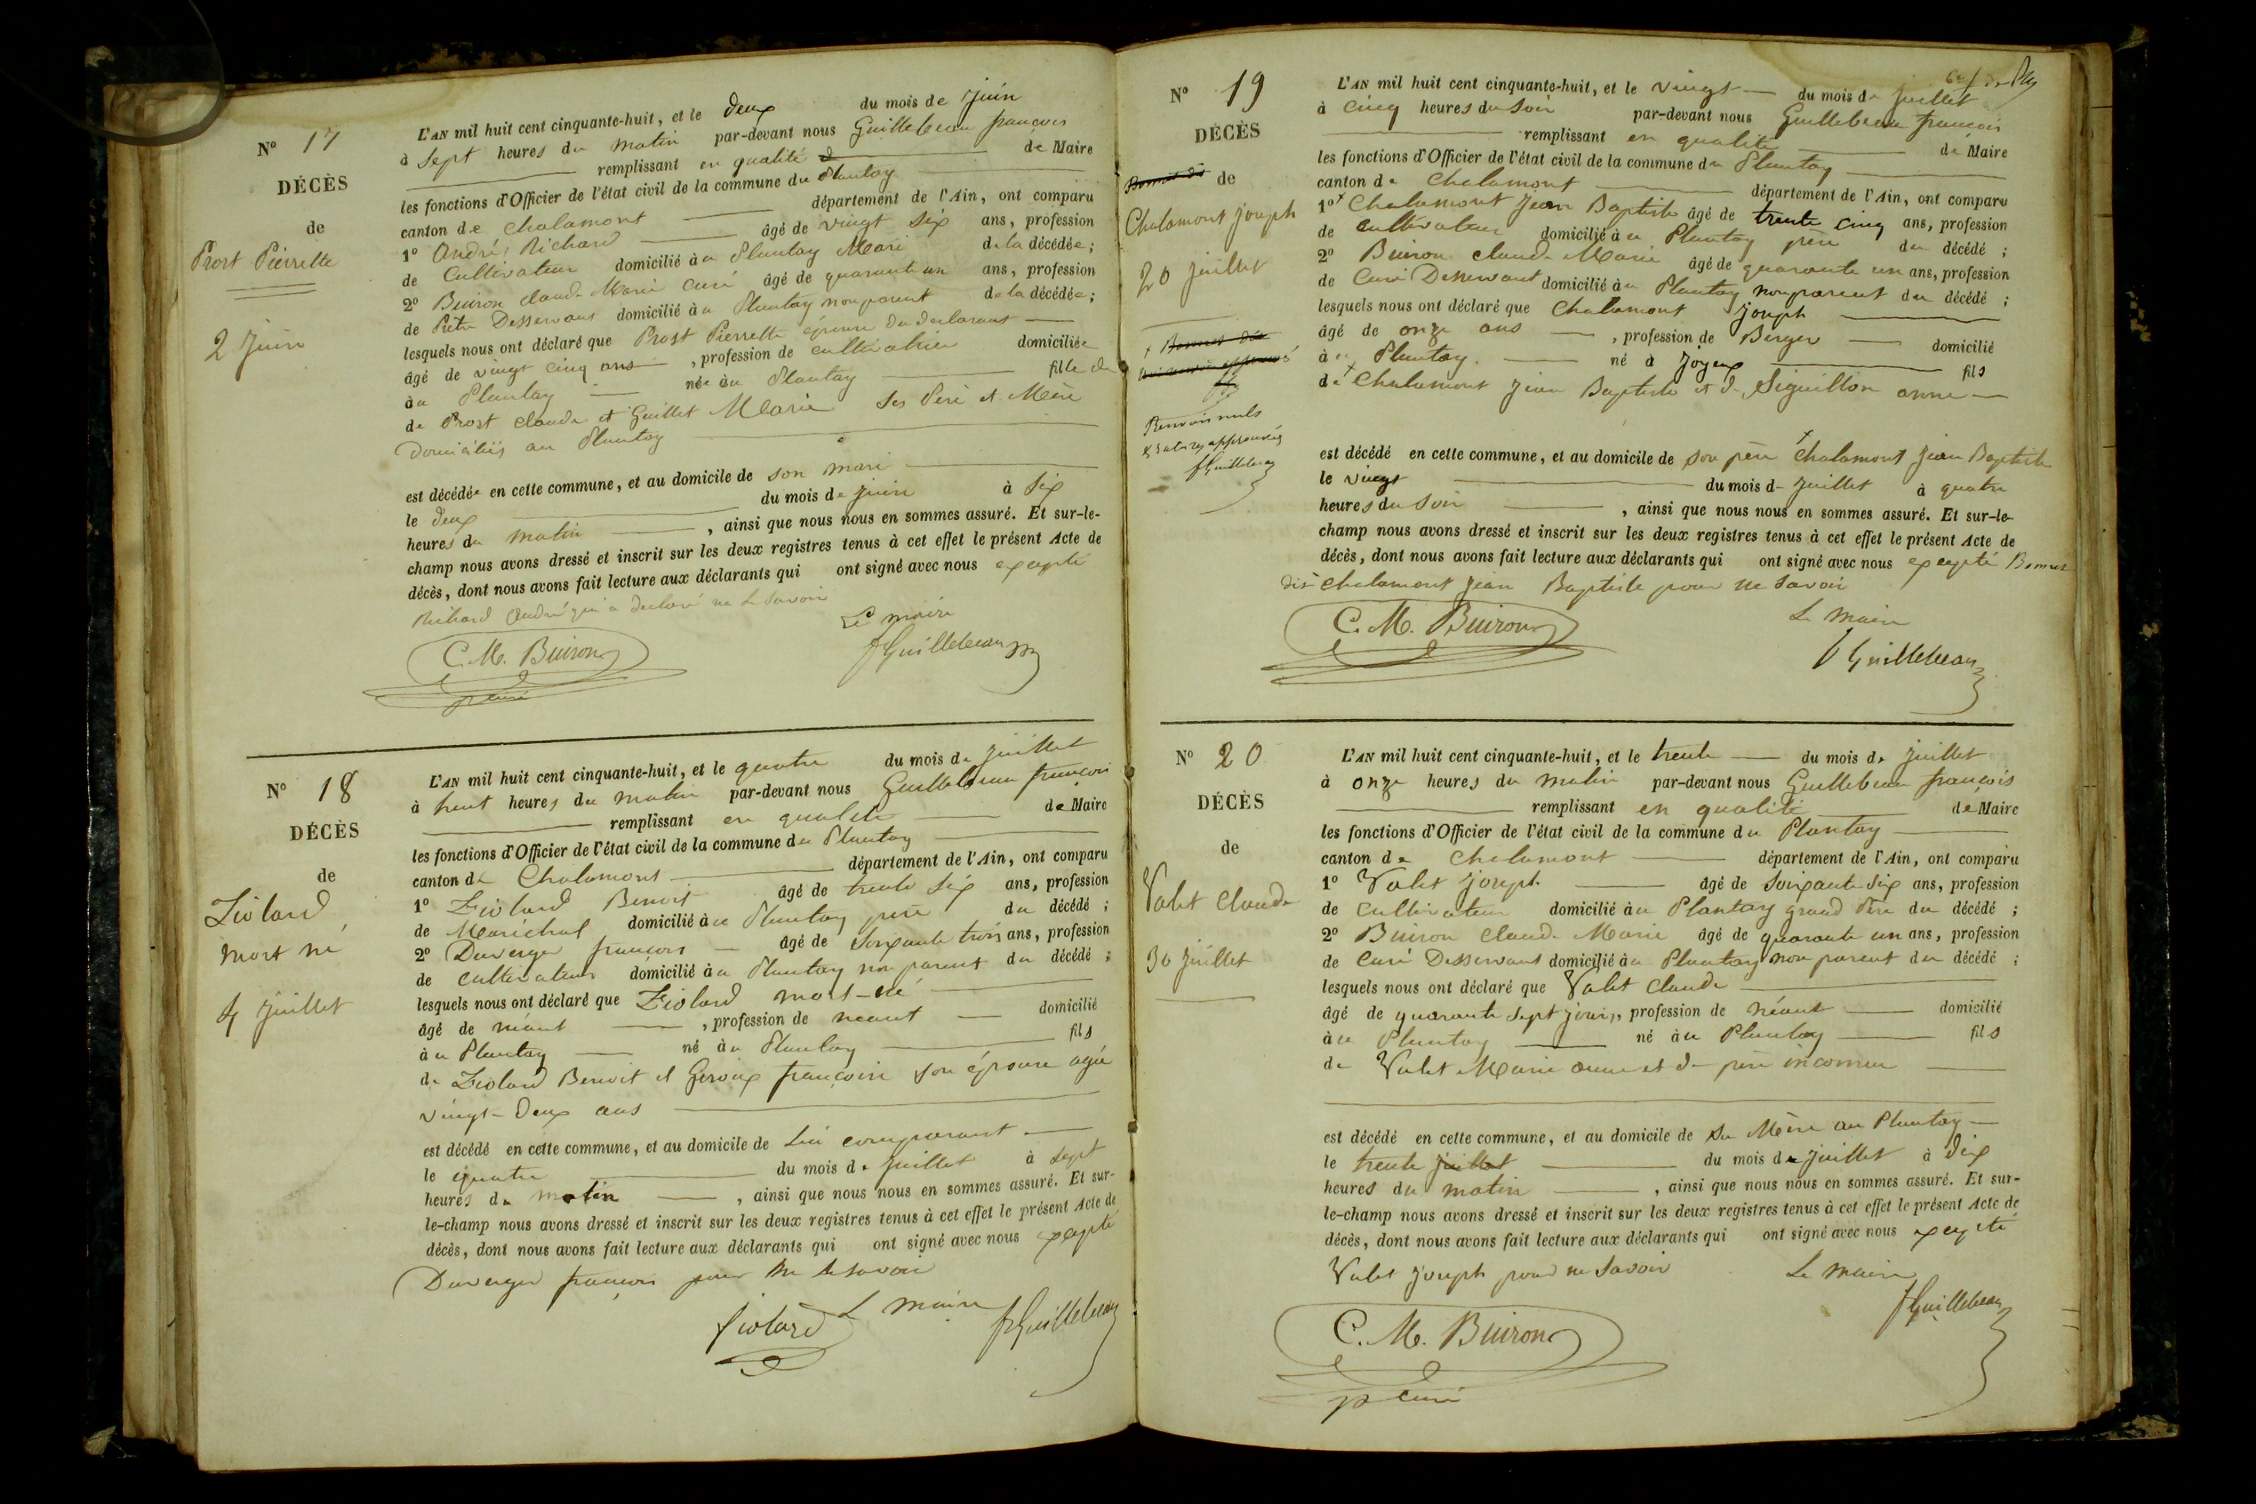 N° 17
DÉCÈS
de
Prost Pierrette
2 Juin
L'AN mil huit cent cinquante-huit, et le deux du mois de Juin
à sept heures du matin par-devant nous Guillebeau françois
remplissant en qualité de Maire
les fonctions d'Officier de l'état civil de la commune du Plantay
canton de Chalamont département de l'Ain, ont comparu
1° André Richard âgé de vingt six ans, profession
de Cultivateur domicilié au Plantay Mari de la décédée;
2° Buiron claude Marie curé âgé de quarante un ans, profession
de Prêtre Desservant domicilié au Plantay non parent de la décédée;
lesquels nous ont déclaré que Prost Pierrette épouse du declarant
âgé de vingt cinq ans, profession de cultivatrice domiciliée
au Plantay née au Plantay fille de
de Prost claude et Guillet Marie ses Père et Mère
Domiciliés au Plantay
est décédée en cette commune, et au domicile de son mari
le deux du mois de juin à six
heures du matin, ainsi que nous nous en sommes assuré. Et sur-le-
champ nous avons dressé et inscrit sur les deux registres tenus à cet effet le présent Acte de
décès, dont nous avons fait lecture aux déclarants qui ont signé avec nous excepté
Richard André qui a declaré ne le savoir
Le maire
C. M. Buiron
fGuillebeau
p curé
N° 18
DÉCÈS
de
Ziolard
mort né
4 juillet
L'AN mil huit cent cinquante-huit, et le quatre du mois de juillet
à huit heures du matin par-devant nous Guillebeau françois
remplissant en qualité de Maire
les fonctions d'Officier de l'état civil de la commune du Plantay
canton de Chalamont département de l'Ain, ont comparu
1° Ziolard Benoit âgé de trente six ans, profession
de Maréchal domicilié au Plantay père du décédé;
2° Duverger françois âgé de soixante trois ans, profession
de cultivateur domicilié au Plantay non parent du décédé;
lesquels nous ont déclaré que Ziolard mort-né
âgé de néant, profession de neant domicilié
au Plantay né au Plantay fils
de Ziolard Benoit et Giroux françoise son épouse agée
vingt-deux ans
est décédé en cette commune, et au domicile de lui comparant
le quatre du mois de juillet à sept
heures du matin, ainsi que nous nous en sommes assuré. Et sur-
le-champ nous avons dressé et inscrit sur les deux registres tenus à cet effet le présent Acte de
décès, dont nous avons fait lecture aux déclarants qui ont signé avec nous excepté
Duverger françois pour ne le savoir
Le maire
fiolard fGuillebeau
N° 19
DÉCÈS
de
Chalamont joseph
20 juillet
Renvois nuls
& ratures approuvés
fGuillebeau
L'AN mil huit cent cinquante-huit, et le vingt du mois de juillet
à cinq heures du soir par-devant nous Guillebeau françois
remplissant en qualité de Maire
les fonctions d'Officier de l'état civil de la commune du Plantay
canton de Chalamont département de l'Ain, ont comparu
1° Chalamont Jean Baptiste âgé de trente cinq ans, profession
de cultivateur domicilié au Plantay père du décédé;
2° Buiron claude Marie âgé de quarante un ans, profession
de Curé Desservant domicilié au Plantay non parent du décédé;
lesquels nous ont déclaré que Chalamont joseph
âgé de onze ans, profession de Berger domicilié
au Plantay né à Joyeux fils
de Chalamont Jean Baptiste et de Siguillon anne
est décédé en cette commune, et au domicile de son père Chalamont Jean Baptiste
le vingt du mois de juillet à quatre
heures du soir, ainsi que nous nous en sommes assuré. Et sur-le-
champ nous avons dressé et inscrit sur les deux registres tenus à cet effet le présent Acte de
décès, dont nous avons fait lecture aux déclarants qui ont signé avec nous excepté Bonnet
dit Chalamont Jean Baptiste pour ne savoir
Le maire
C. M. Buiron
fGuillebeau
N° 20
DÉCÈS
de
Valet claude
30 juillet
L'AN mil huit cent cinquante-huit, et le trente du mois de juillet
à onze heures du matin par-devant nous Guillebeau françois
remplissant en qualité de Maire
les fonctions d'Officier de l'état civil de la commune du Plantay
canton de Chalamont département de l'Ain, ont comparu
1° Valet joseph âgé de soixante-six ans, profession
de cultivateur domicilié au Plantay grand Père du décédé;
2° Buiron claude Marie âgé de quarante un ans, profession
de Curé Desservant domicilié au Plantay non parent du décédé;
lesquels nous ont déclaré que Valet claude
âgé de quarante sept jours, profession de Néant domicilié
au Plantay né au Plantay fils
de Valet Marie anne et de père inconnu
est décédé en cette commune, et au domicile de sa Mère au Plantay
le trente juillet du mois de juillet à dix
heures du matin, ainsi que nous nous en sommes assuré. Et sur-
le-champ nous avons dressé et inscrit sur les deux registres tenus à cet effet le présent Acte de
décès, dont nous avons fait lecture aux déclarants qui ont signé avec nous excepté
Valet joseph pour ne savoir
Le maire
C. M. Buiron
fGuillebeau
p curé